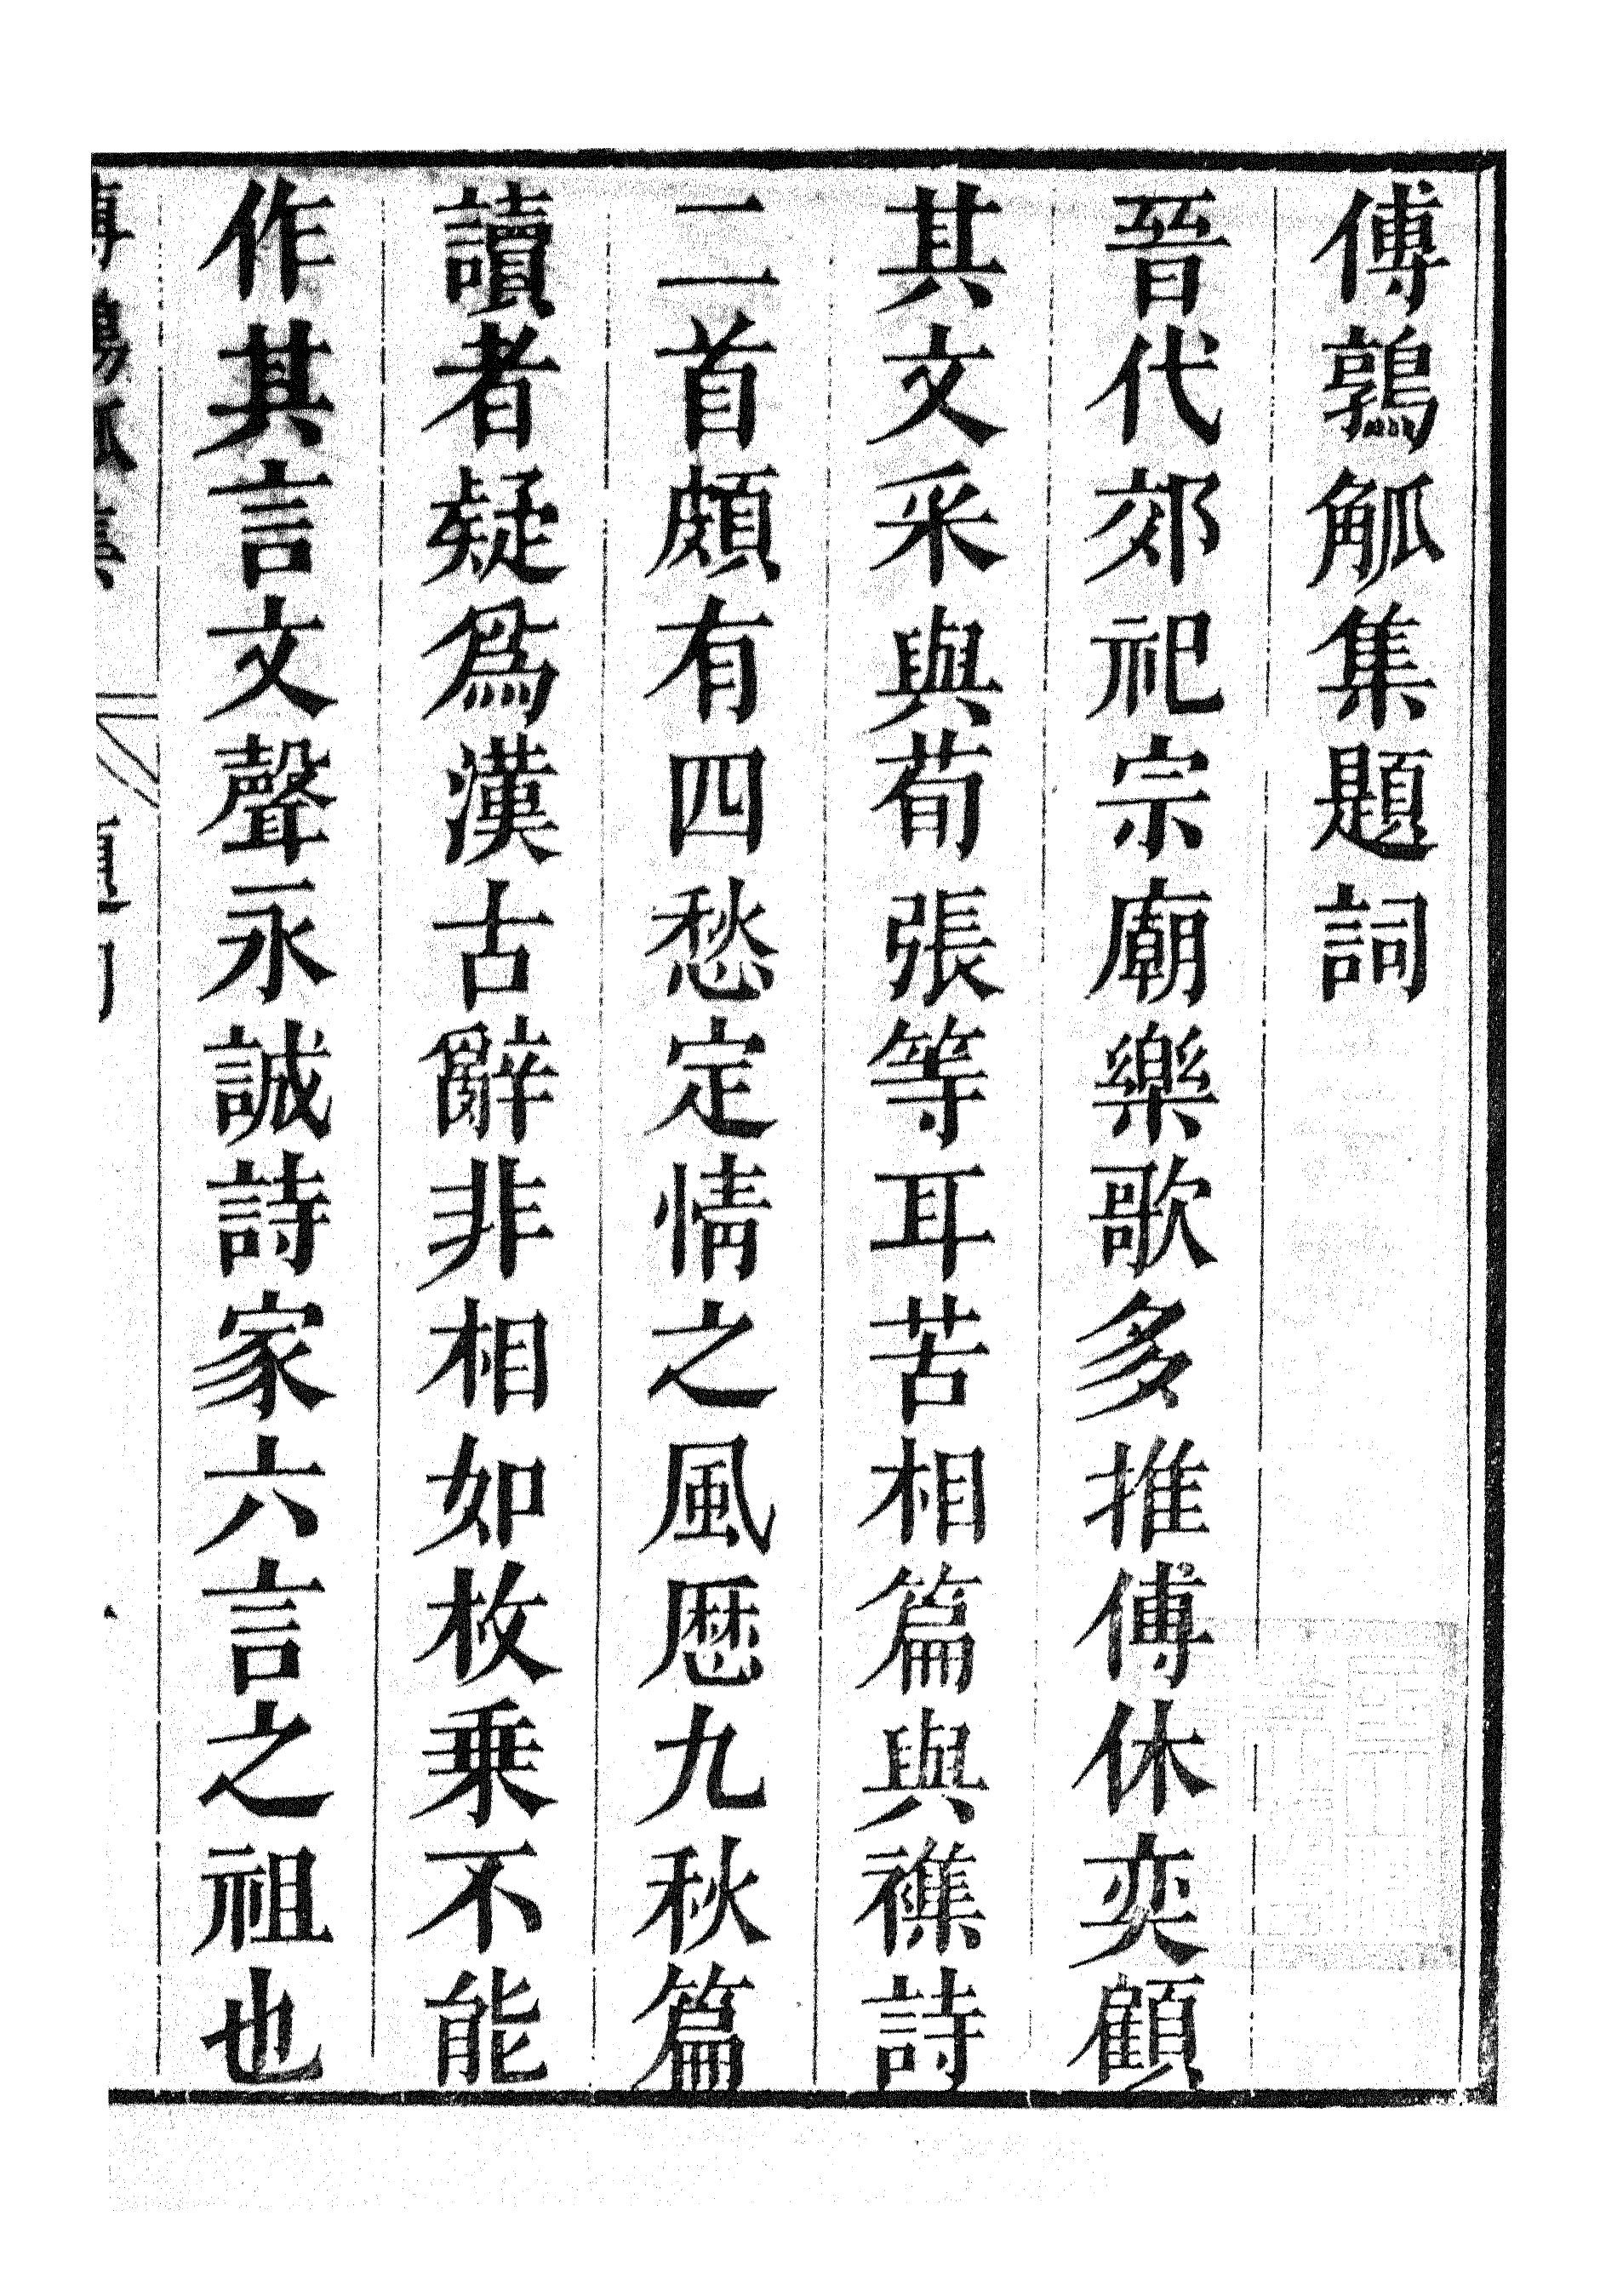 傅鶉觚集題詞
晉代郊祀宗廟樂歌多推傅休奕顧
其文采與荀張等耳苦相篇與襍詩
二首頗有四愁定情之風歷九秋篇
讀者疑為漢古辭非相如枚乗不能
作其言文聲永誠詩家六言之祖也